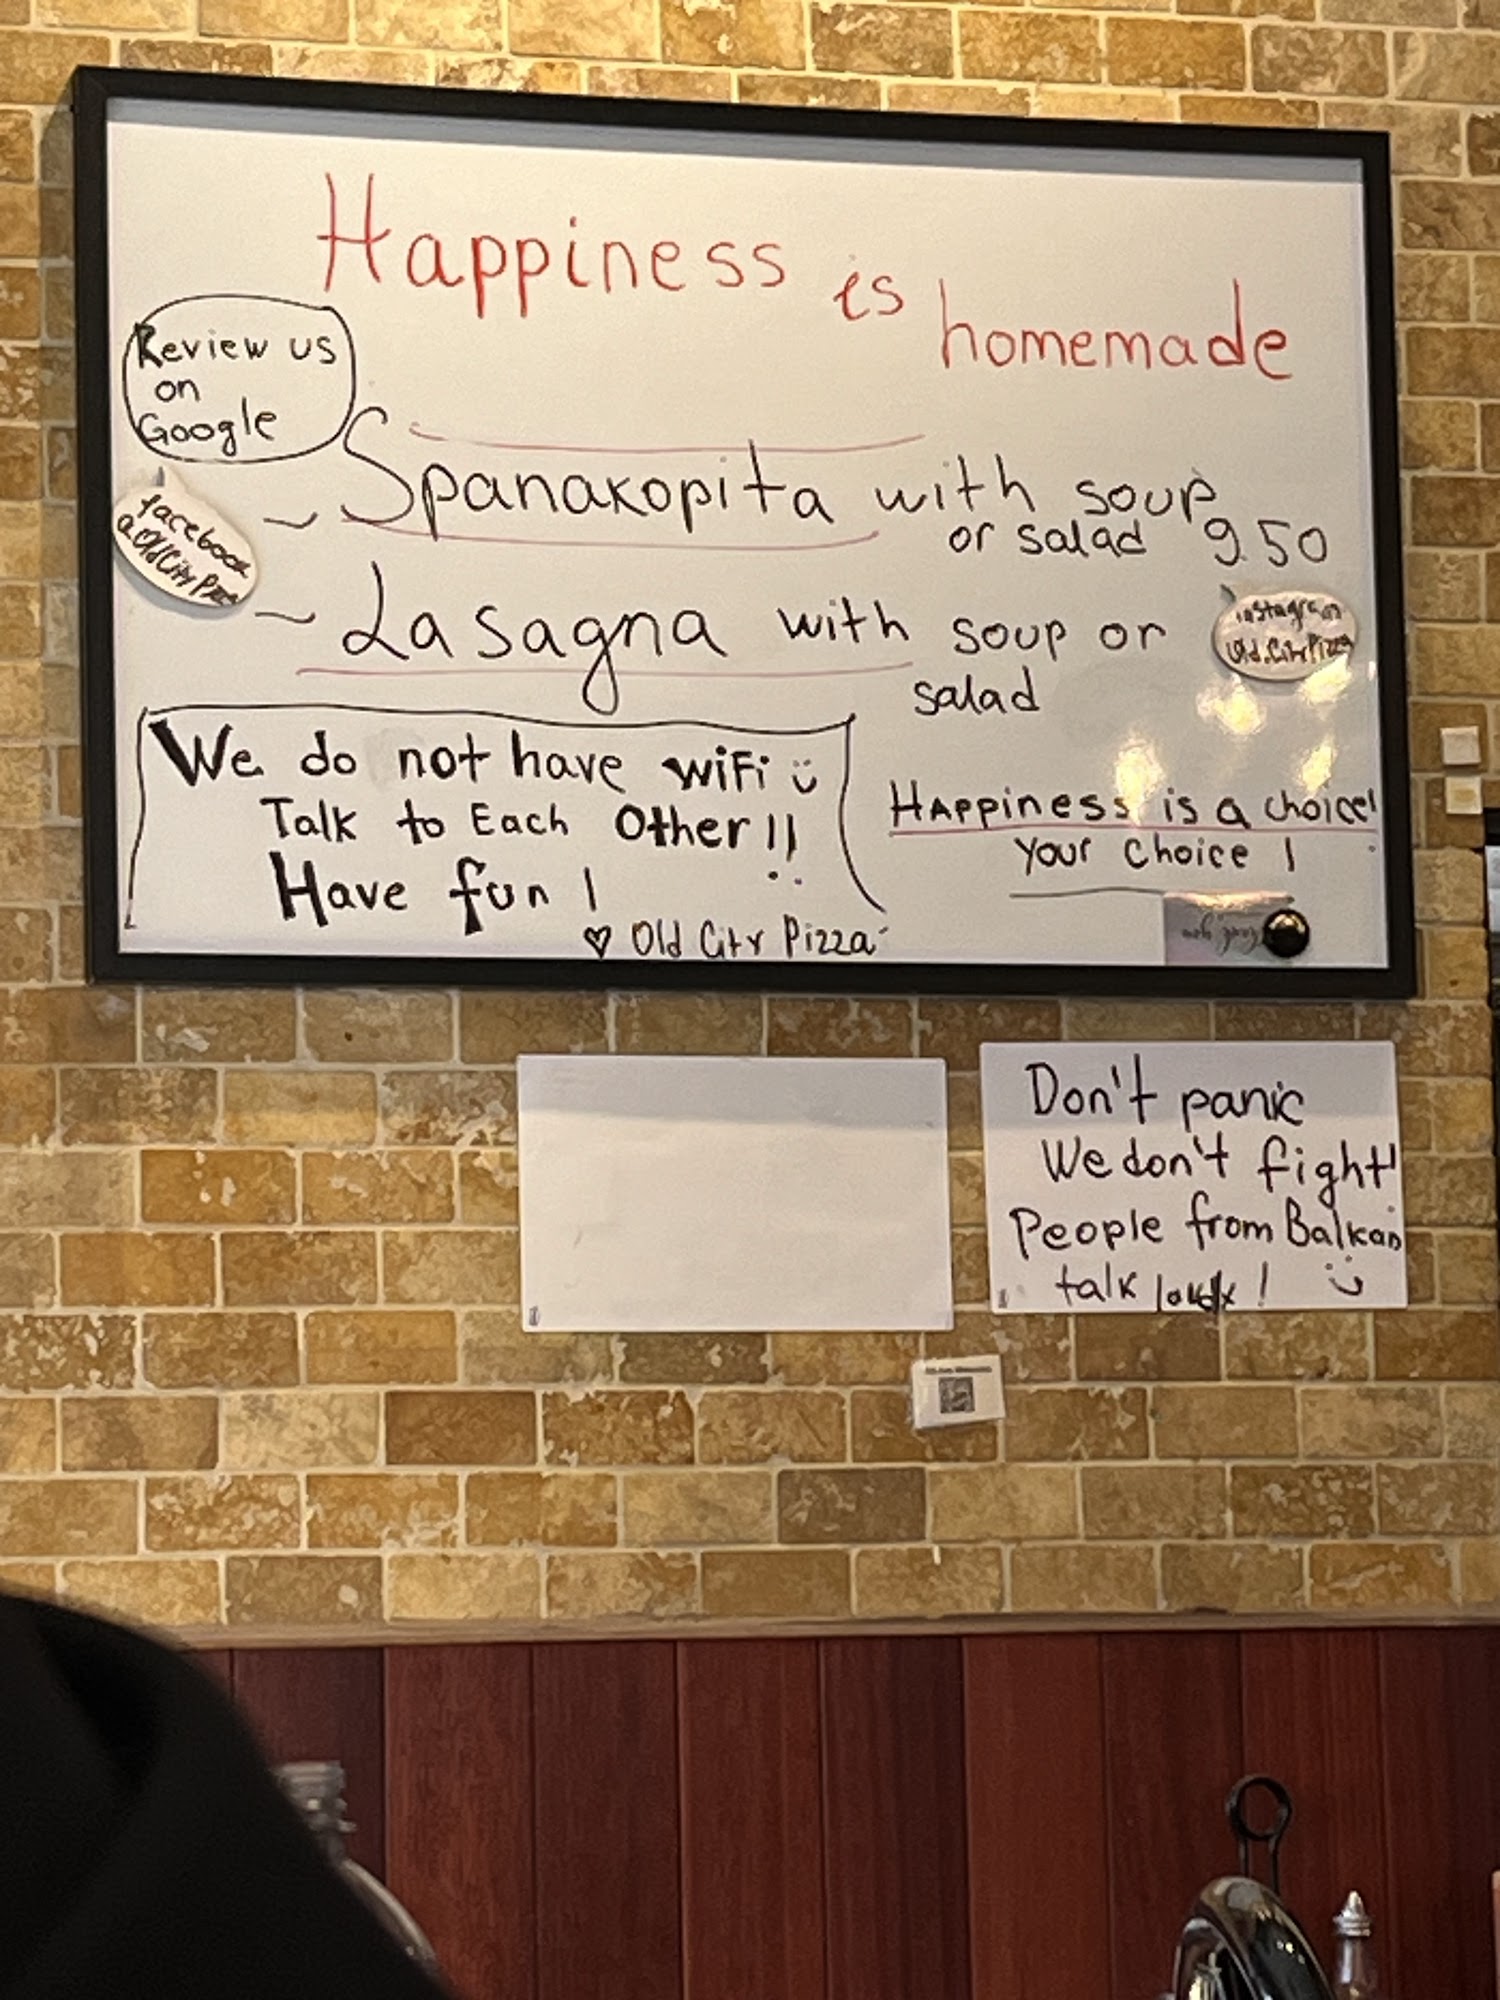 Happiness is homemade
Review us
on
Google
Spanakopita with soup
or salad 9.50
facebook
Lasagna with soup or
salad
instagram
Old.CityPizza
We do not have WiFi
Talk to Each Other!!
Have fun!
♡ Old City Pizza
HAppiness is a choice!
your choice!
Don't panic
We don't fight!
People from Balkan
talk loudly!